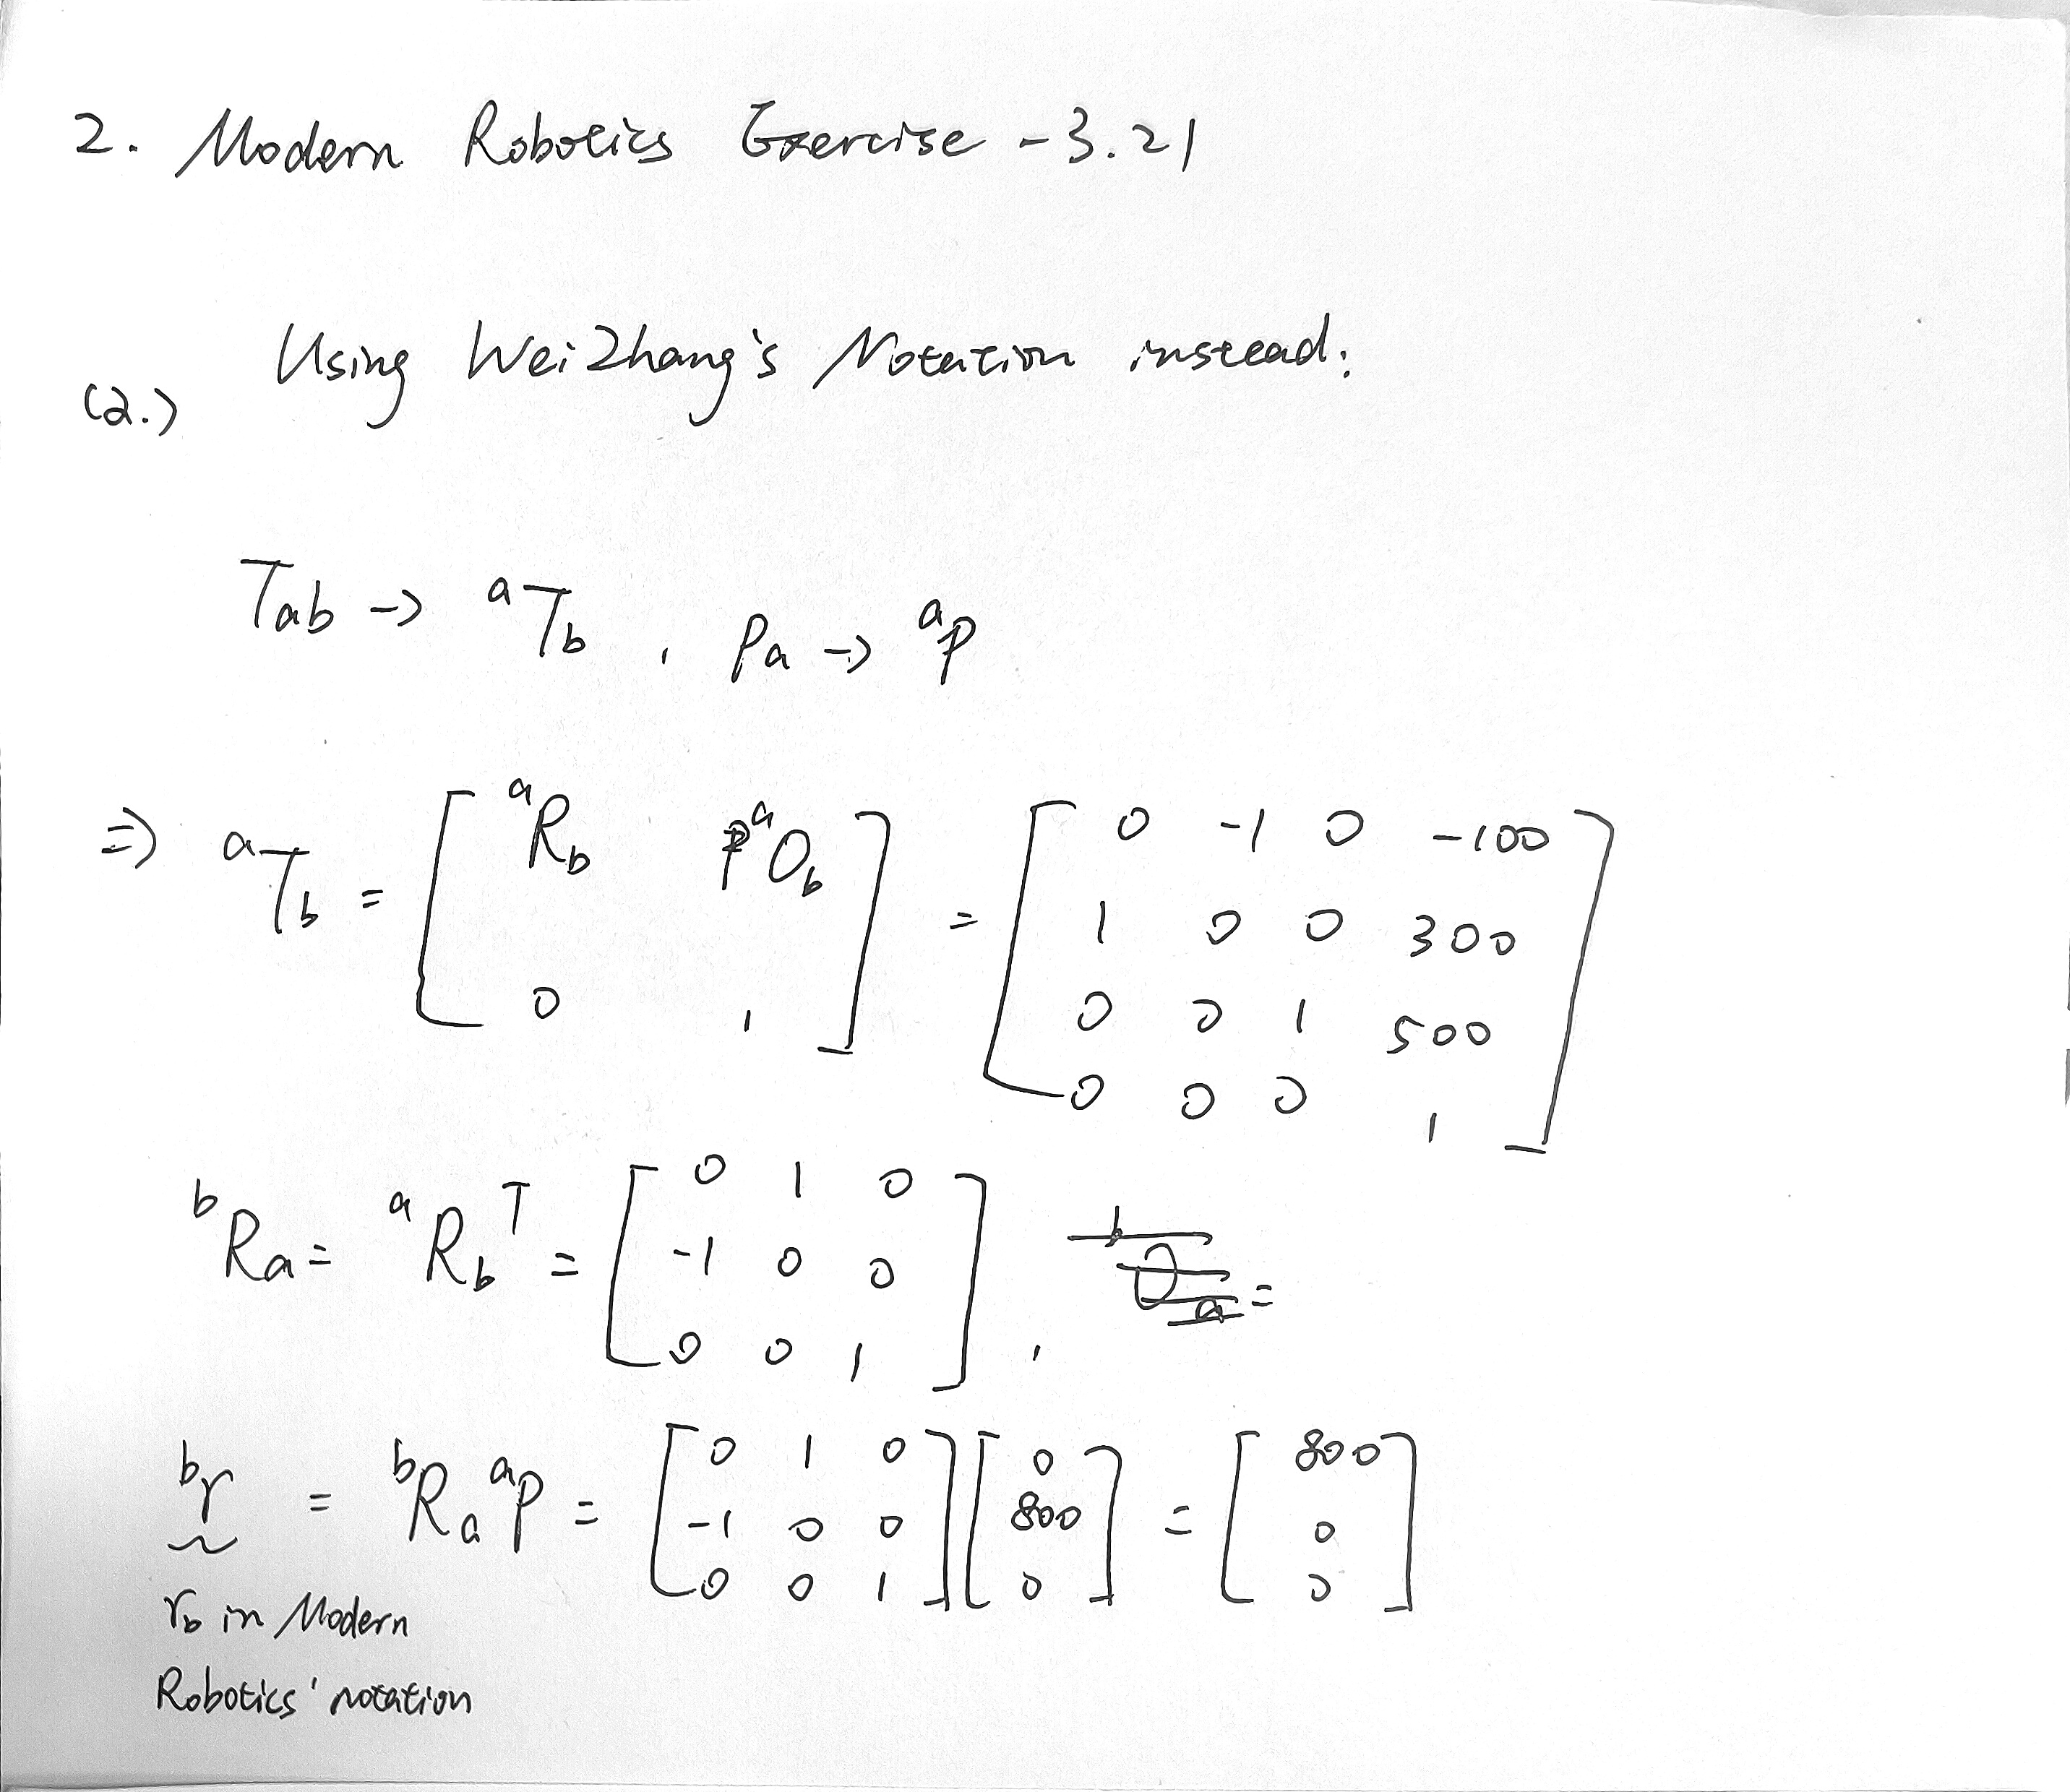 2. Modern Robotics Exercise - 3.21
Using Wei Zhang's Notation instead:
(a.)
Tab -> ᵃT_b , Pa -> ᵃp
=> ᵃT_b = [ ᵃR_b ᵃO_b ; 0 1 ] = [ 0 -1 0 -100 ; 1 0 0 300 ; 0 0 1 500 ; 0 0 0 1 ]
ᵇR_a = ᵃR_bᵀ = [ 0 1 0 ; -1 0 0 ; 0 0 1 ] , =
ᵇr = ᵇR_a ᵃp = [ 0 1 0 ; -1 0 0 ; 0 0 1 ] [ 0 ; 800 ; 0 ] = [ 800 ; 0 ; 0 ]
r_b in Modern
Robotics' notation